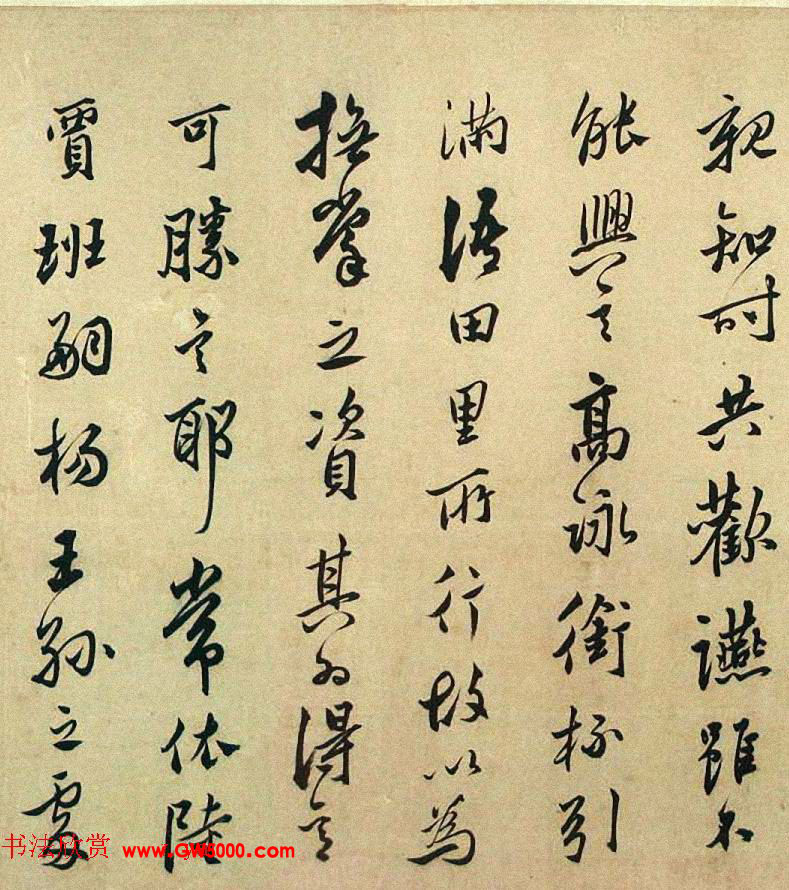 親知時共歡讌雖不
能興言高詠銜杯引
滿語田里所行故以為
撫掌之資其為得意
可勝言耶常依陸
賈班嗣楊王孫之處
书法欣赏 www.GW5000.com